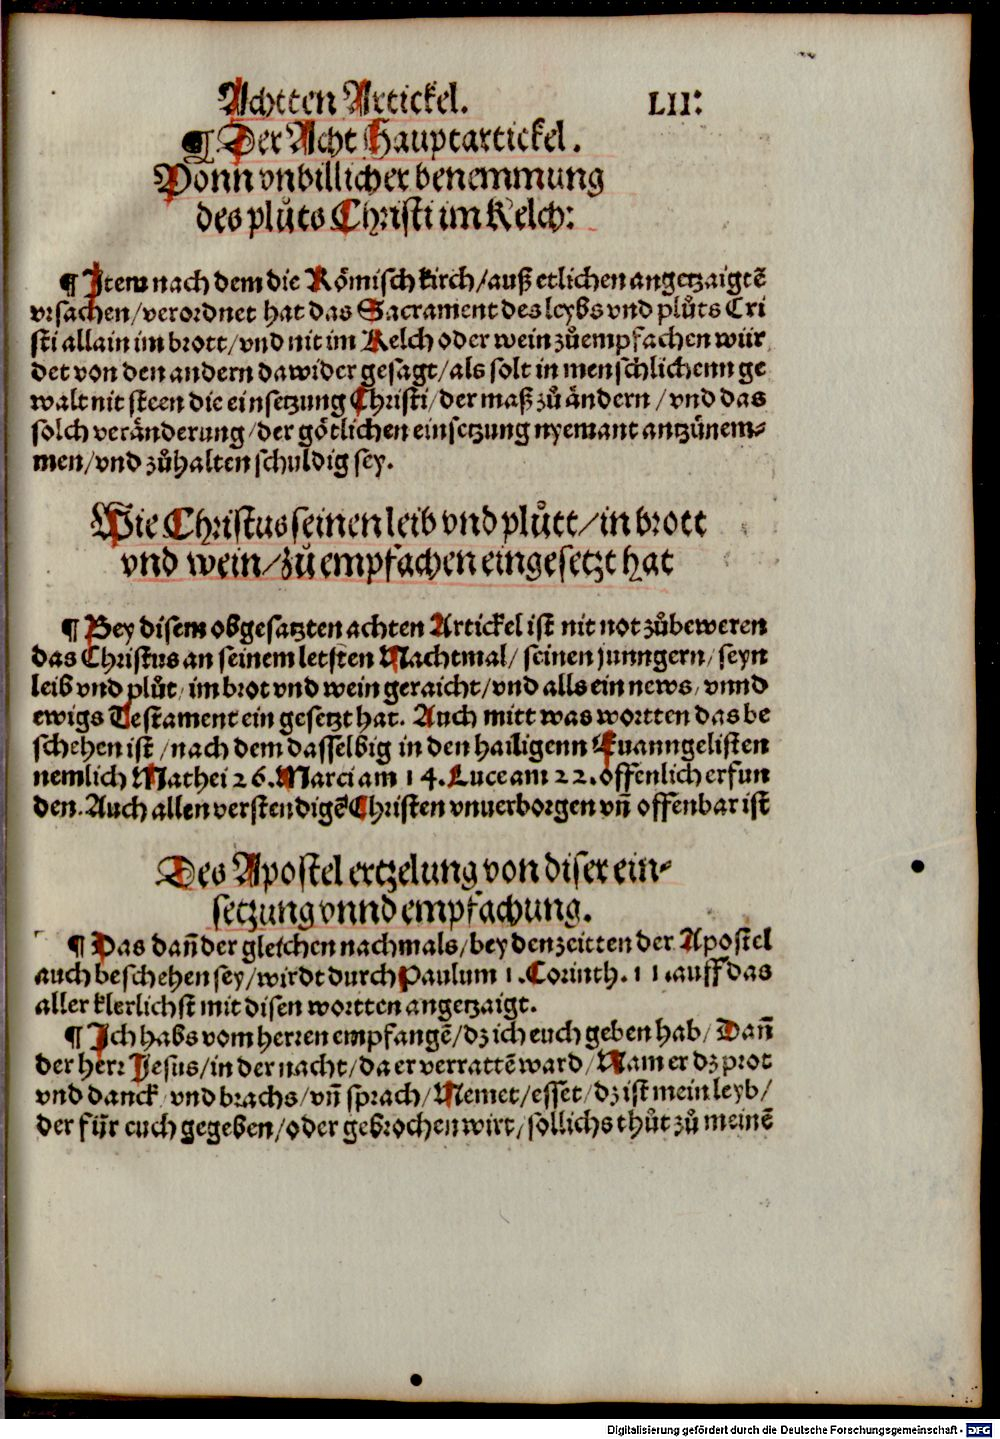 Achtten Artickel. LII:
¶ Der Acht Hauptartickel.
Vonn vnbillicher benemmung
des plůts Christi im Kelch:
¶ Item nach dem die Römisch kirch/auß etlichen angetzaigtē
vrsachen/verordnet hat das Sacrament des leybs vnd plůts Cri
sti allain im brott/vnd nit im Kelch oder wein zůempfachen wür
det von den andern dawider gesagt/als solt in menschlichenn ge
walt nit steen die einsetzung Christi/der maß zů ändern/vnd das
solch veränderung/der götlichen einsetzung nyemant antzůnem⸗
men/vnd zůhalten schuldig sey.
Wie Christus seinen leib vnd plůtt/in brott
vnd wein/zů empfachen eingesetzt hat
¶ Bey disem obgesatzten achten Artickel ist nit not zůbeweren
das Christus an seinem letsten Nachtmal/ seinen junngern/ seyn
leib vnd plůt/ im brot vnd wein geraicht/vnd alls ein news/ vnnd
ewigs Testament ein gesetzt hat. Auch mitt was wortten das be
schehen ist/nach dem dasselbig in den hailigenn Euanngelisten
nemlich Mathei 26. Marci am 14. Luce am 22. offenlich erfun
den. Auch allen verstendigē Christen vnuerborgen vn̄ offenbar ist
Des Apostel ertzelung von diser ein⸗
setzung vnnd empfachung.
¶ Das dan̄ der gleichen nachmals/bey den zeitten der Apostel
auch beschehen sey/wirdt durch Paulum 1. Corinth. 11. auff das
aller klerlichst mit disen wortten angetzaigt.
¶ Ich habs vom herren empfangē/dz ich euch geben hab/ Dan̄
der herr Jesus/in der nacht/da er verrattē ward/ Nam er dz prot
vnd danck/ vnd brachs/vn̄ sprach/Nemet/esset/dz ist mein leyb/
der für euch gegeben/oder gebrochen wirt/sollichs thůt zů meinē
Digitalisierung gefördert durch die Deutsche Forschungsgemeinschaft - DFG